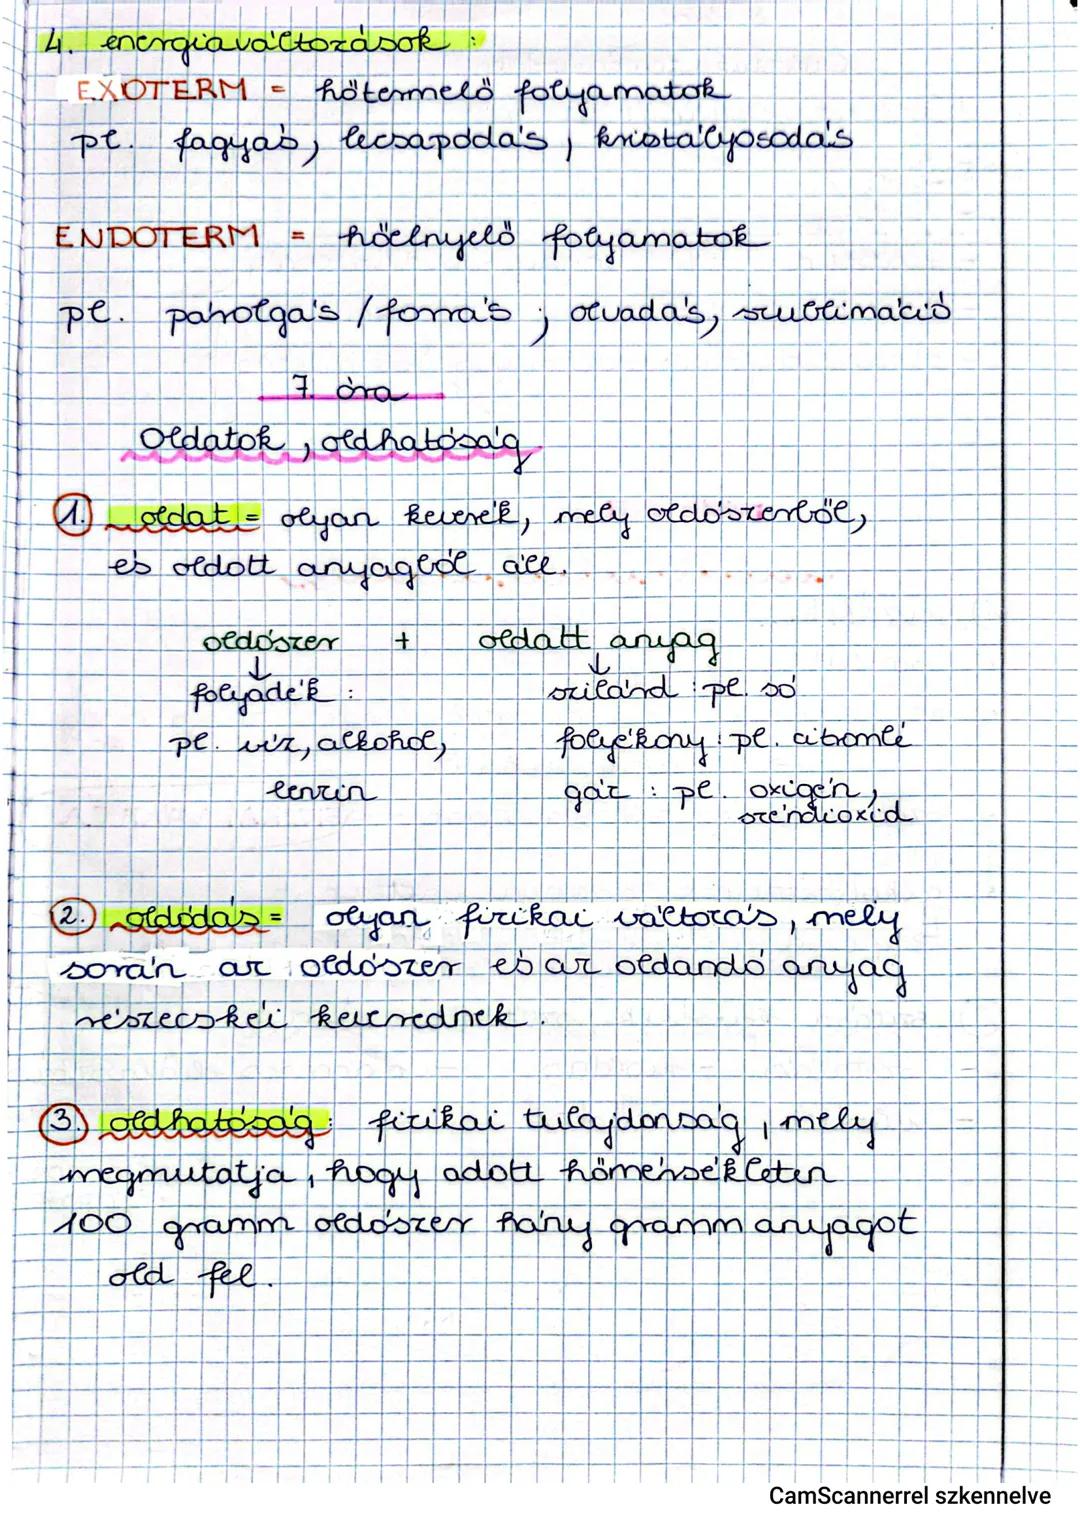 4. energiaváltozások :
EXOTERM = hőtermelő folyamatok
pl. fagyás, lecsapódás, kristályosodás
ENDOTERM = hőelnyelő folyamatok
pl. párolgás / forrás ; olvadás, szublimáció
7. óra
Oldatok, oldhatóság
1. oldat = olyan keverék, mely oldószerből,
és oldott anyagból áll.
oldószer + oldatt anyag
↓ ↓
folyadék : szilárd : pl. só
pl. víz, alkohol, folyékony : pl. citromlé
benzin gáz : pl. oxigén,
széndioxid
2. oldódás = olyan fizikai változás, mely
során az oldószer és az oldandó anyag
részecskéi keverednek.
3. oldhatóság: fizikai tulajdonság, mely
megmutatja, hogy adott hőmérsékleten
100 gramm oldószer hány gramm anyagot
old fel.
CamScannerrel szkennelve